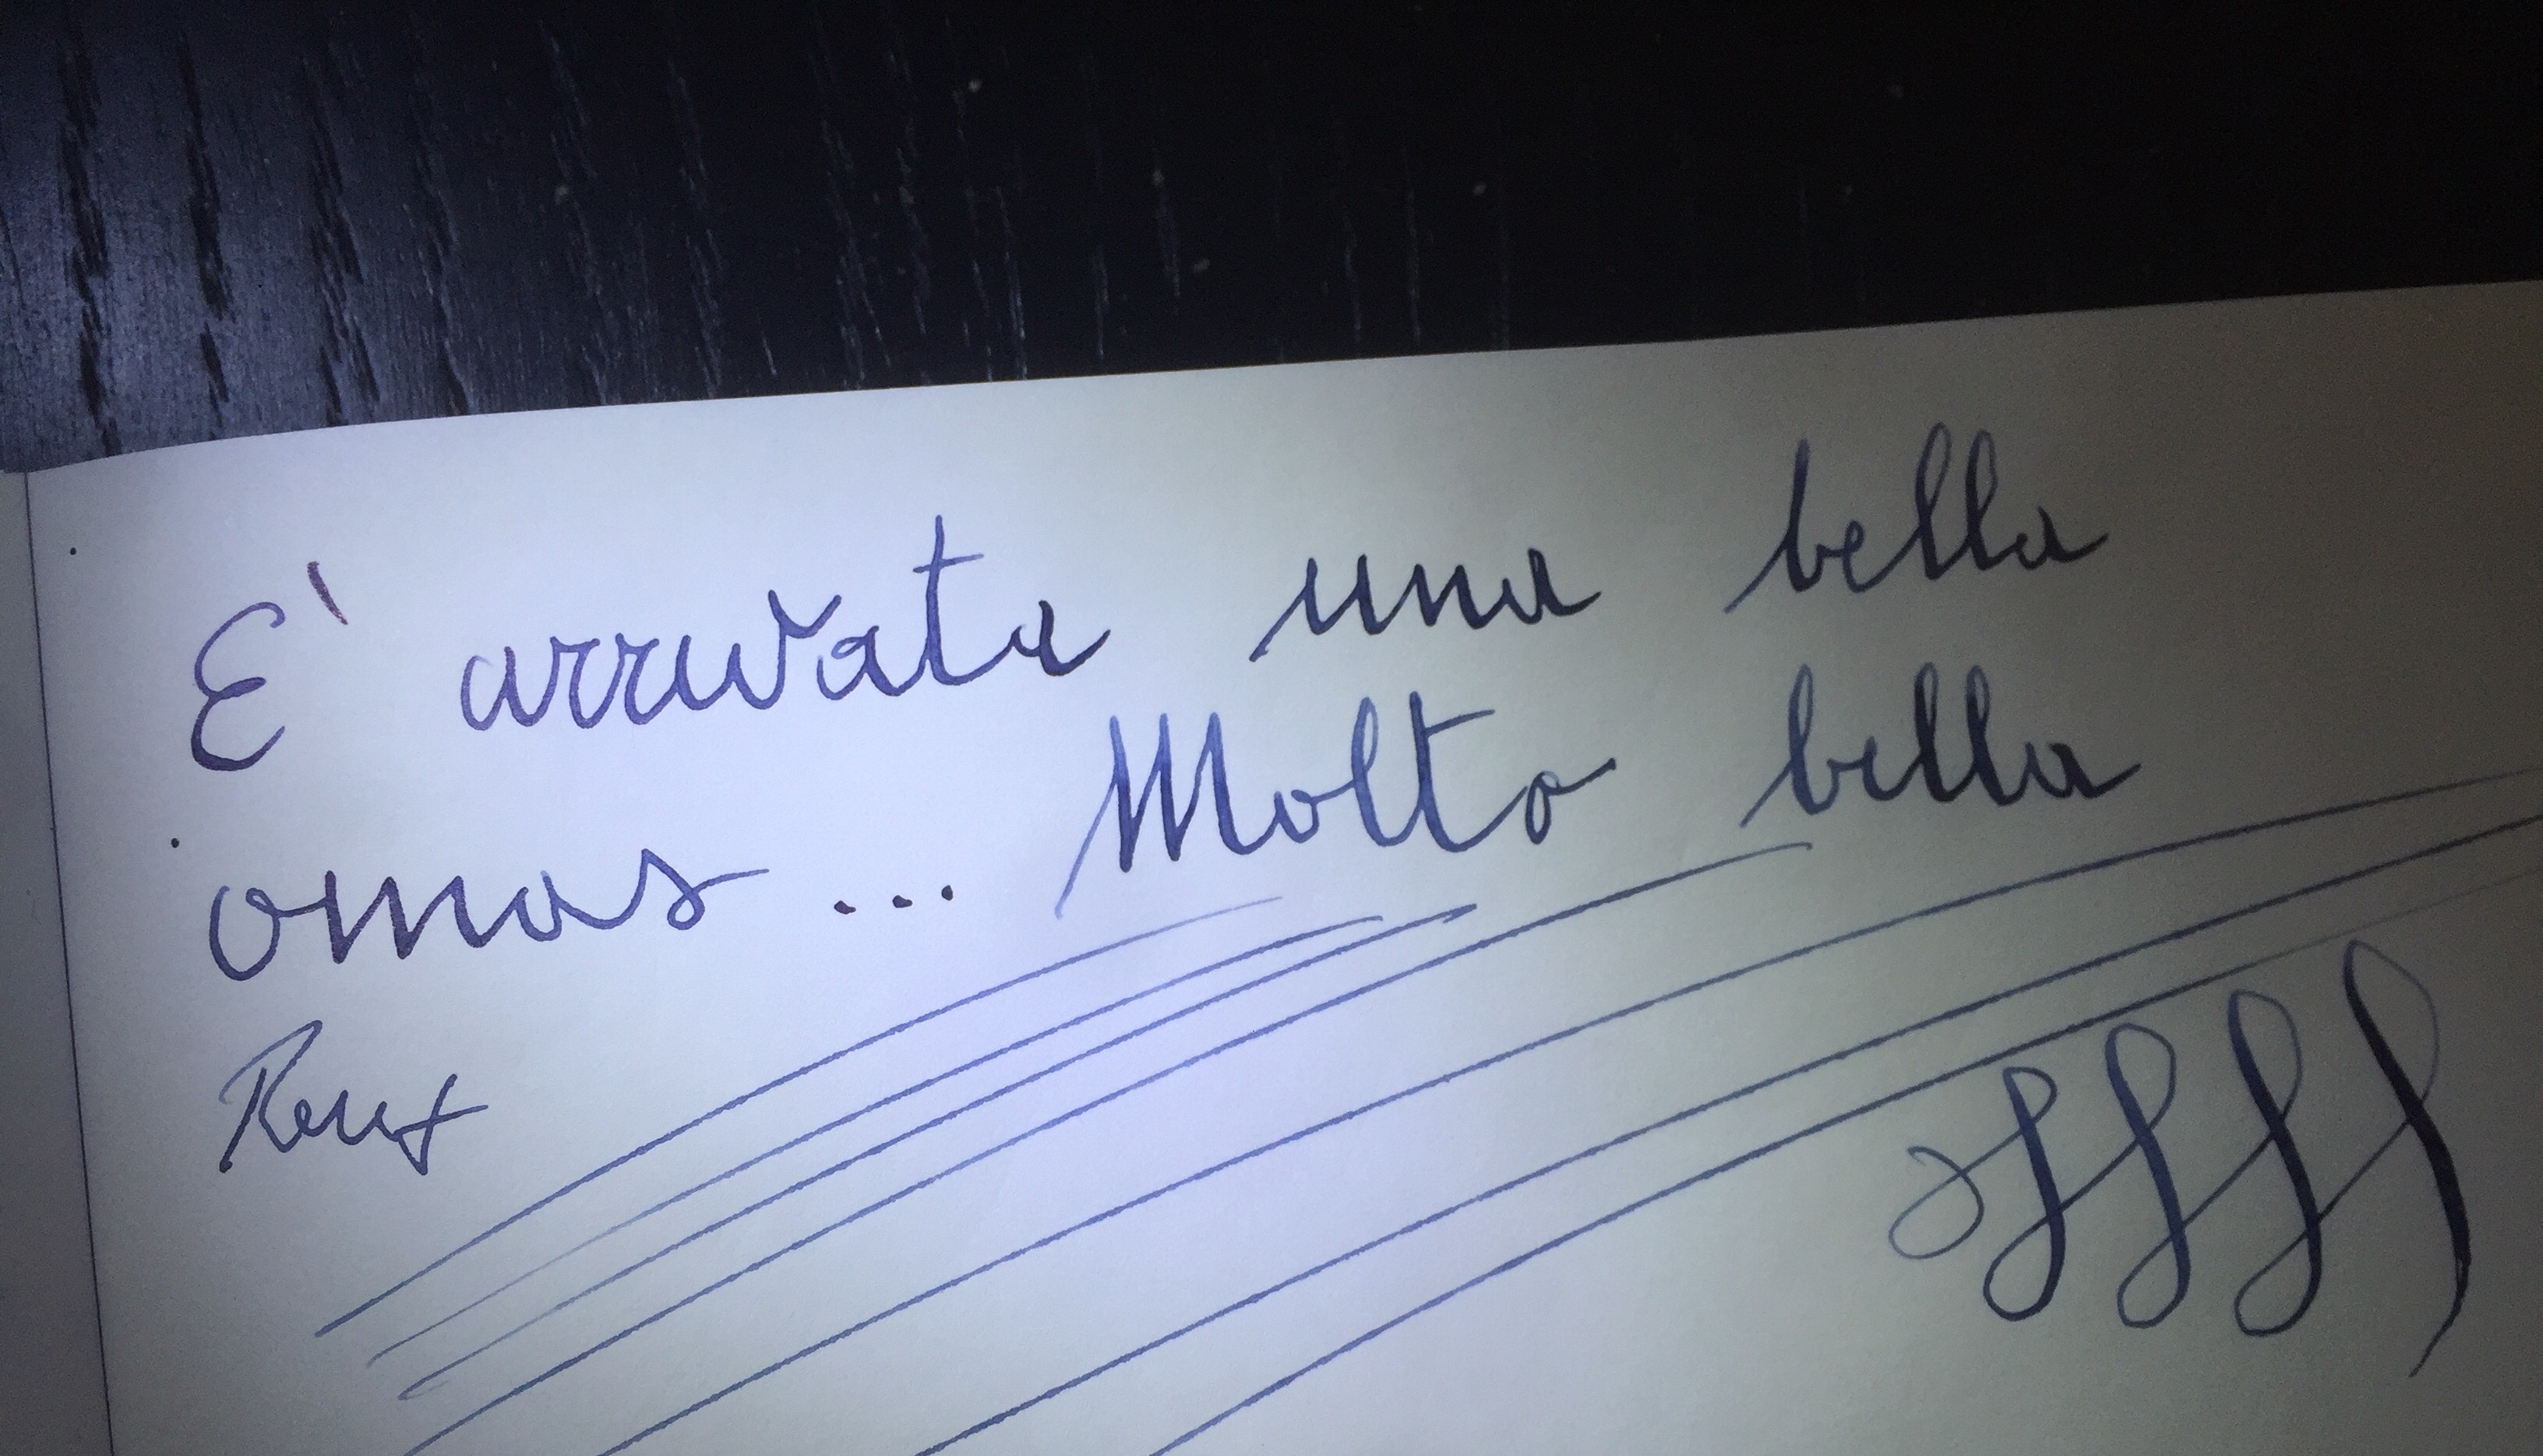 E' arrivata una bella
omas... Molto bella